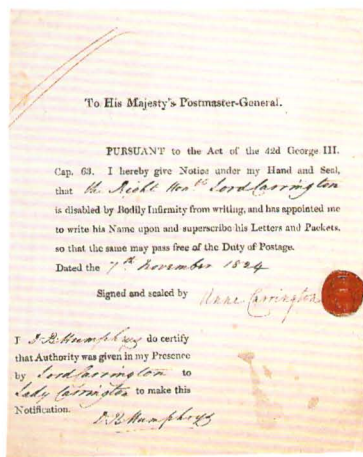 To His Majesty's Postmaster-General.
PURSUANT to the Act of the 42d George III.
Cap. 63. I hereby give Notice under my Hand and Seal,
that the Right Honble Lord Carrington
is disabled by Bodily Infirmity from writing, and has appointed me
to write his Name upon and superscribe his Letters and Packets,
so that the same may pass free of the Duty of Postage.
Dated the 7th November 1824
Signed and sealed by Anne Carrington
I J. R. Humphrey do certify
that Authority was given in my Presence
by Lord Carrington to
Lady Carrington to make this
Notification.
J R Humphrey